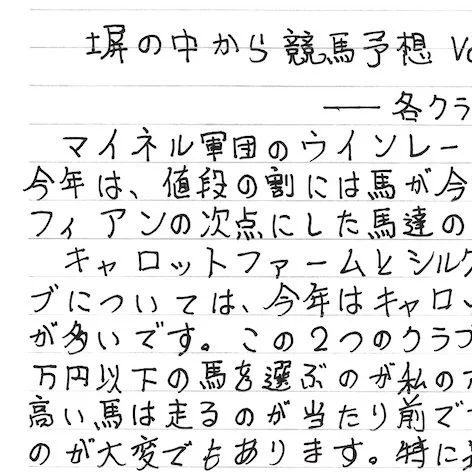 塀の中から競馬予想 Vo
── 各クラ
マイネル軍団のウインレー
今年は、値段の割には馬が今
フィアンの次点にした馬達の
キャロットファームとシルク
ブについては、今年はキャロッ
が多いです。この2つのクラブ
万円以下の馬を選ぶのが私の
高い馬は走るのが当たり前で
のが大変でもあります。特に